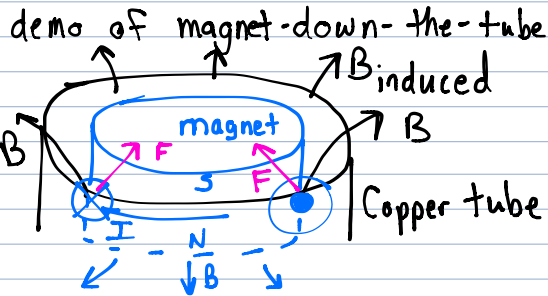 demo of magnet-down-the-tube
B induced
magnet
B
B
F
F
S
Copper tube
I
N
B